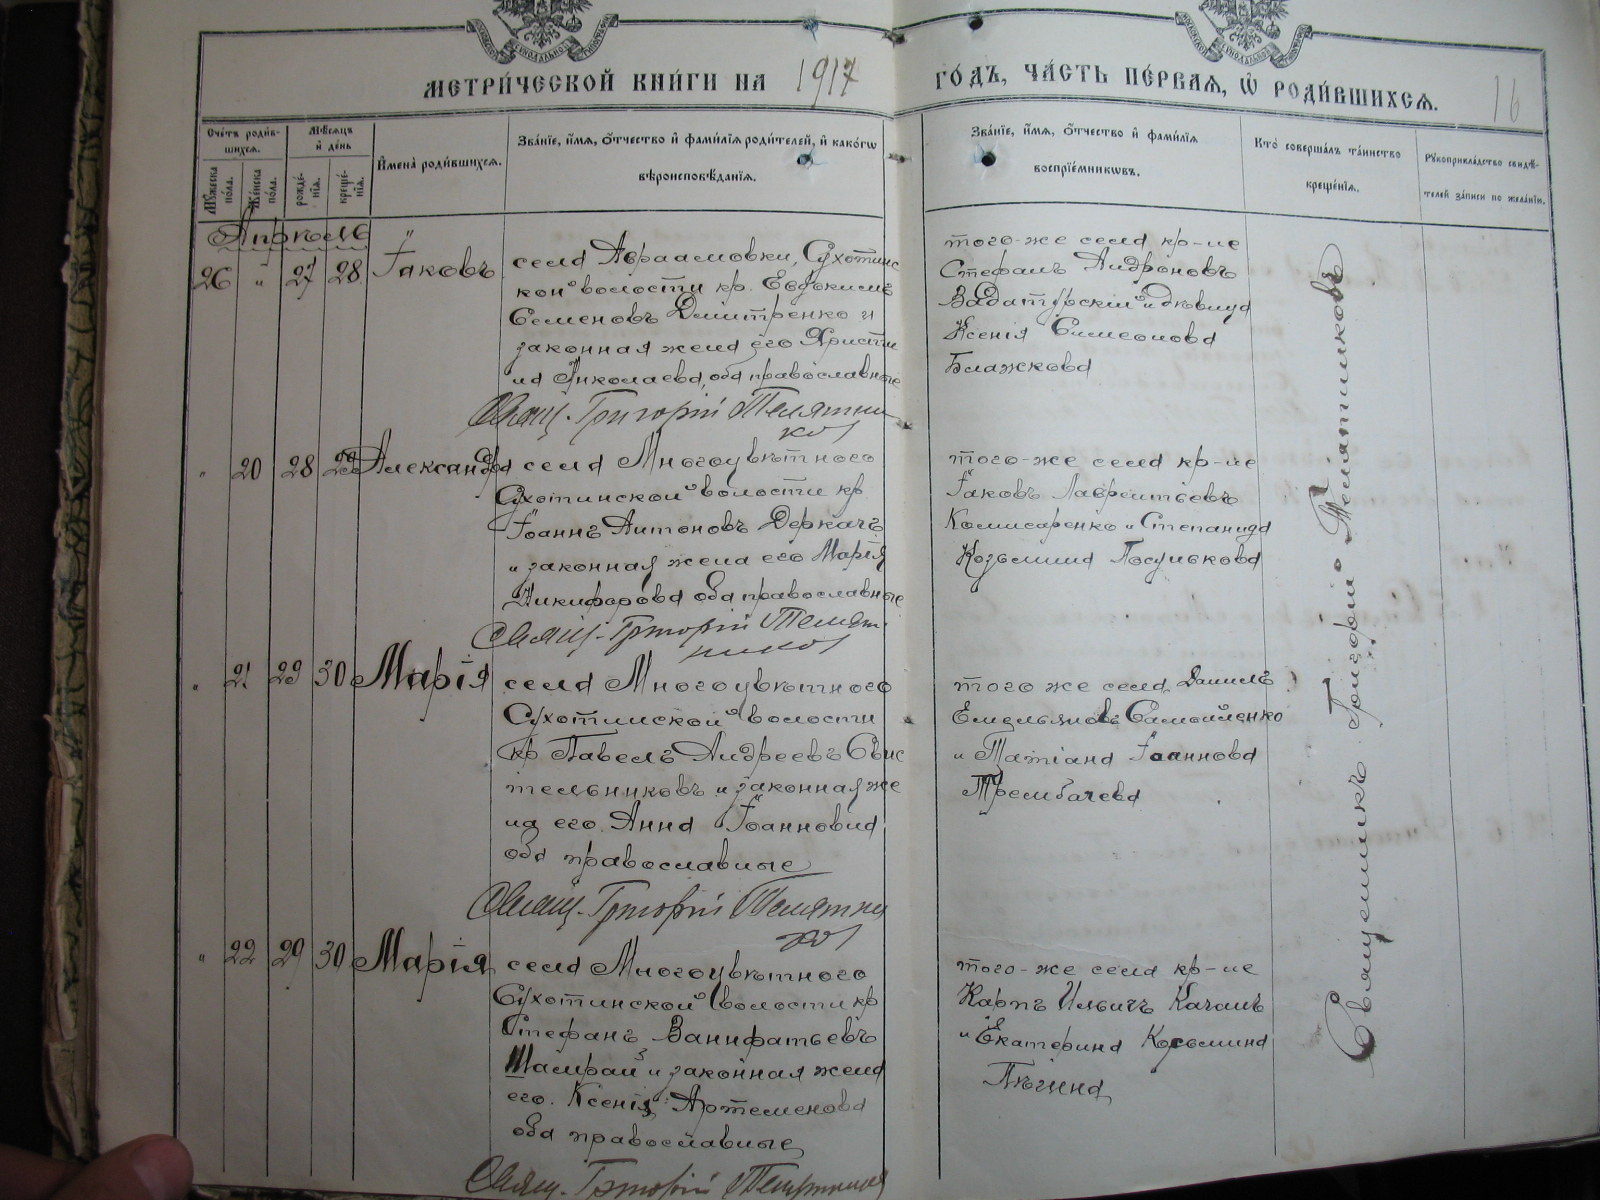 МЕТРИ́ЧЕСКОЙ КНИ́ГИ НА 1917 ГО́ДЪ, ЧА́СТЬ ПЕ́РВАЯ, Ѿ РОДИ́ВШИХСЯ.
16
Счётъ роди́в-
шихся.
Мѣ́сяцъ
и҆ де́нь
И҆мена̀ роди́вшихся.
Зва́нїе, и҆́мя, ѻ҆́тчество и҆ фами́лїя роди́телей, и҆ како́гѡ
вѣроисповѣ́данїя.
Зва́нїе, и҆́мя, ѻ҆́тчество и҆ фами́лїя
воспрїе́мникѡвъ.
Кто̀ соверша́лъ та́инство
креще́нїя.
Рꙋкоприкла́дство свидѣ́-
телей за́писи по жела́нїю.
Мꙋ́жеска
по́ла.
Же́нска
по́ла.
рожде́-
нїя.
креще́-
нїя.
Апрѣль
26 " 27 28 Іаковъ
села Авраамовки, Сухотинс
кой волости кр. Евдокимъ
Семеновъ Дмитренко и
законная жена его Христи
на Николаева, оба православные
Свящ. Григорій Телятни
ковъ
того-же села кр-не
Стефанъ Андроновъ
Вадатурскій и дѣвица
Ксенія Симеонова
Блажкова
" 20 28 29 Александра
села Многоцвѣтного
Сухотинской волости кр
Іоаннъ Антоновъ Деркачъ
и законная жена его Марія
Никифорова оба православные
Свящ. Григорій Телят
никовъ
того-же села кр-не
Іаковъ Лаврентьевъ
Комисаренко и Степанида
Козьмина Посунькова
" 21 29 30 Марія
села Многоцвѣтного
Сухотинской волости
кр Павелъ Андреевъ Свис
тельниковъ и законная же
на его Анна Іоанновна
оба православные
Свящ. Григорій Телятни
ковъ
того же села Данилъ
Емельяновъ Самойленко
и Татіана Іоаннова
Трембачева
" 22 29 30 Марія
села Многоцвѣтного
Сухотинской волости кр
Стефанъ Ванифатьевъ
Шамрай и законная жена
его Ксенія Артеменова
оба православные
Свящ. Григорій
того-же села кр-не
Карпъ Ильичъ Качанъ
и Екатерина Косьмина
Пѣгина
Священникъ Григорій Телятниковъ